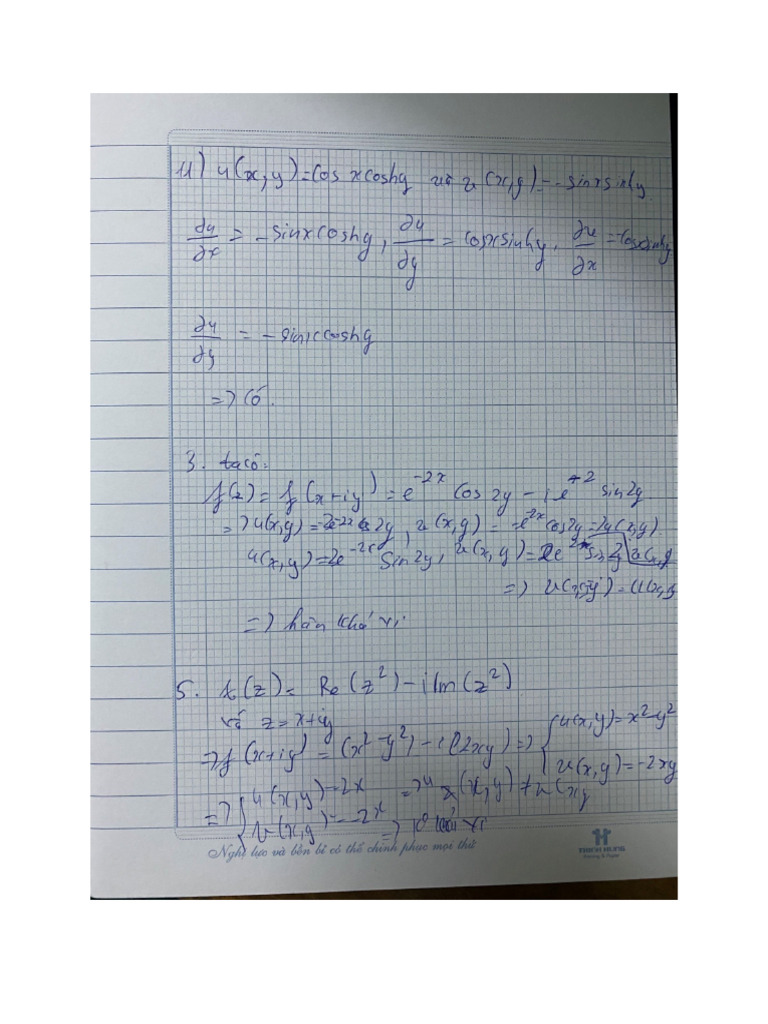 11) u(x,y)=cosxcoshy và v(x,y)=-sinxsinhy
∂u/∂x = -sinxcoshy, ∂u/∂y = cosxsinhy, ∂v/∂x = -cosxsinhy
∂u/∂y = -sinxcoshy
=> Có.
3. ta có:
f(z) = f(x+iy) = e^-2x cos2y - i e^-2 sin2y
=> u(x,y)=-2e^-2x cos2y, v(x,y) = -e^-2x cos2y =
u(x,y)=2e^-2x Sin2y, v(x,y)=2e^-2x sin2y
=>
=> hàm khả vi
5. f(z)= Re(z²)-iIm(z²)
với z=x+iy
=> f(x+iy) = (x²-y²)-i(2xy) => { u(x,y)=x²-y²
v(x,y)=-2xy
=> { u(x,y)=2x => u x(x,y) ≠ v(xy
v(x,y)=-2x => khả vi
Nghị lực và bền bỉ có thể chinh phục mọi thứ
THIEN HUNG